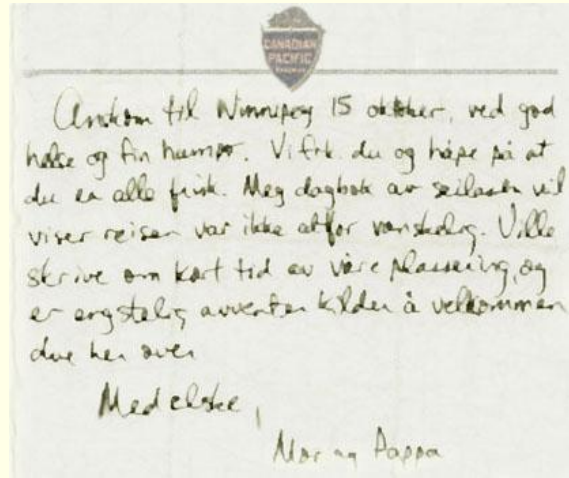 CANADIAN
PACIFIC
Ankom til Winnipeg 15 oktober, ved god
helse og fin humør. Vi frk. du og håpe på at
du er alle frisk. Meg dagbok av seilasen vil
viser reisen var ikke altfor vanskelig. Ville
skrive om kort tid av våre plassering, og
er engstelig avventer kilder å velkommen
due her over
Med elske,
Mor og Pappa